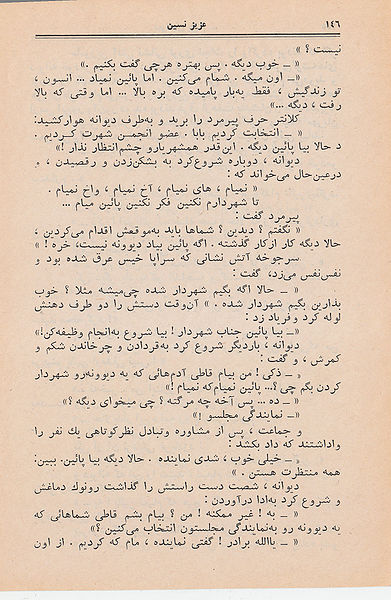 ۱۴۶ عزیز نسین
نیست؟»
«ــ خوب دیگه . پس بهتره هرچی گفت بکنیم .»
«ــ اون میگه . شمام می‌کنین . اما پائین نمیاد ... انسون ،
تو زندگیش ، فقط یه‌بار پامیده که بره بالا ... اما وقتی که بالا
رفت ، دیگه ...»
کلانتر حرف پیرمرد را برید و به‌طرف دیوانه هوارکشید:
«ــ انتخابت کردیم بابا . عضو انجمن شهرت کردیم .
د حالا بیا پائین دیگه . این‌قدر همشهریارو چشم‌انتظار نذار !»
دیوانه ، دوباره شروع‌کرد به بشکن‌زدن و رقصیدن ، و
درعین‌حال می‌خواند که :
«ــ نمیام ، های نمیام ، آخ نمیام ، واخ نمیام .
تا شهردارم نکنین فکر نکنین پائین میام ...
پیرمرد گفت :
«ــ نگفتم ؟ دیدین ؟ شماها باید به‌موقعش اقدام می‌کردین ،
حالا دیگه کار ازکار گذشته . اگه پائین بیاد دیوونه نیست، خره !»
سرجوخه آتش نشانی که سراپا خیس عرق شده بود و
نفس‌نفس می‌زد، گفت :
«ــ حالا اگه بگیم شهردار شده چی‌میشه مثلا ؟ خوب
بذارین بگیم شهردار شده . » آن‌وقت دستش را دو طرف دهنش
لوله کرد و فریاد زد :
«ــ بیا پائین جناب شهردار ! بیا شروع به‌انجام وظیفه‌کن!»
دیوانه ، باردیگر شروع کرد به‌قردادن و چرخاندن شکم و
کمرش ، و گفت :
«ــ زکی ! من بیام قاطی آدم‌هائی که یه دیوونه‌رو شهردار
کردن بگم چی ؟... پائین نمیام‌که نمیام !»
«ــ ده ... پس آخه چه مرگته ؟ چی میخوای دیگه ؟»
«ــ نمایندگی مجلسو !»
و جماعت ، پس از مشاوره وتبادل نظرکوتاهی یك نفر را
واداشتند که داد بکشد :
«ــ خیلی خوب ، شدی نماینده . حالا دیگه بیا پائین. ببین:
همه منتظرت هستن . »
دیوانه ، شصت دست راستش را گذاشت رونوك دماغش
و شروع کرد به‌ادا درآوردن :
«ــ به ! غیر ممکنه ! من ؟ بیام بشم قاطی شماهائی که
یه دیوونه رو به‌نمایندگی مجلستون انتخاب می‌کنین ؟»
«ــ یاالله برادر ! گفتی نماینده ، مام که کردیم . از اون